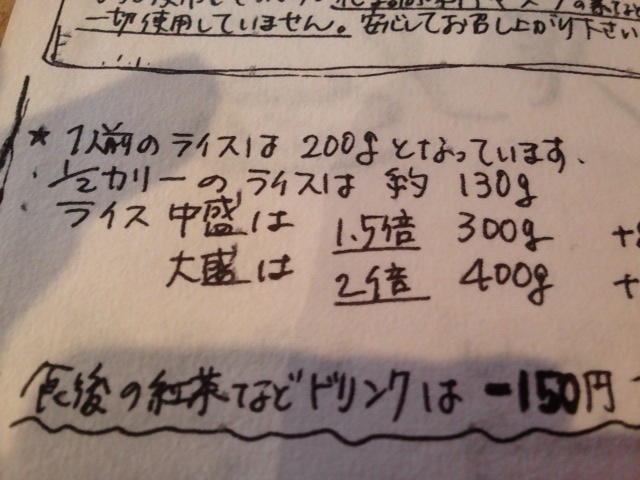 一切使用していません。安心してお召し上がり下さい
★ 1人前のライスは 200gとなっています.
・1/2カリーのライスは 約 130g
ライス 中盛は 1.5倍 300g +
大盛は 2倍 400g +
食後の紅茶などドリンクは -150円